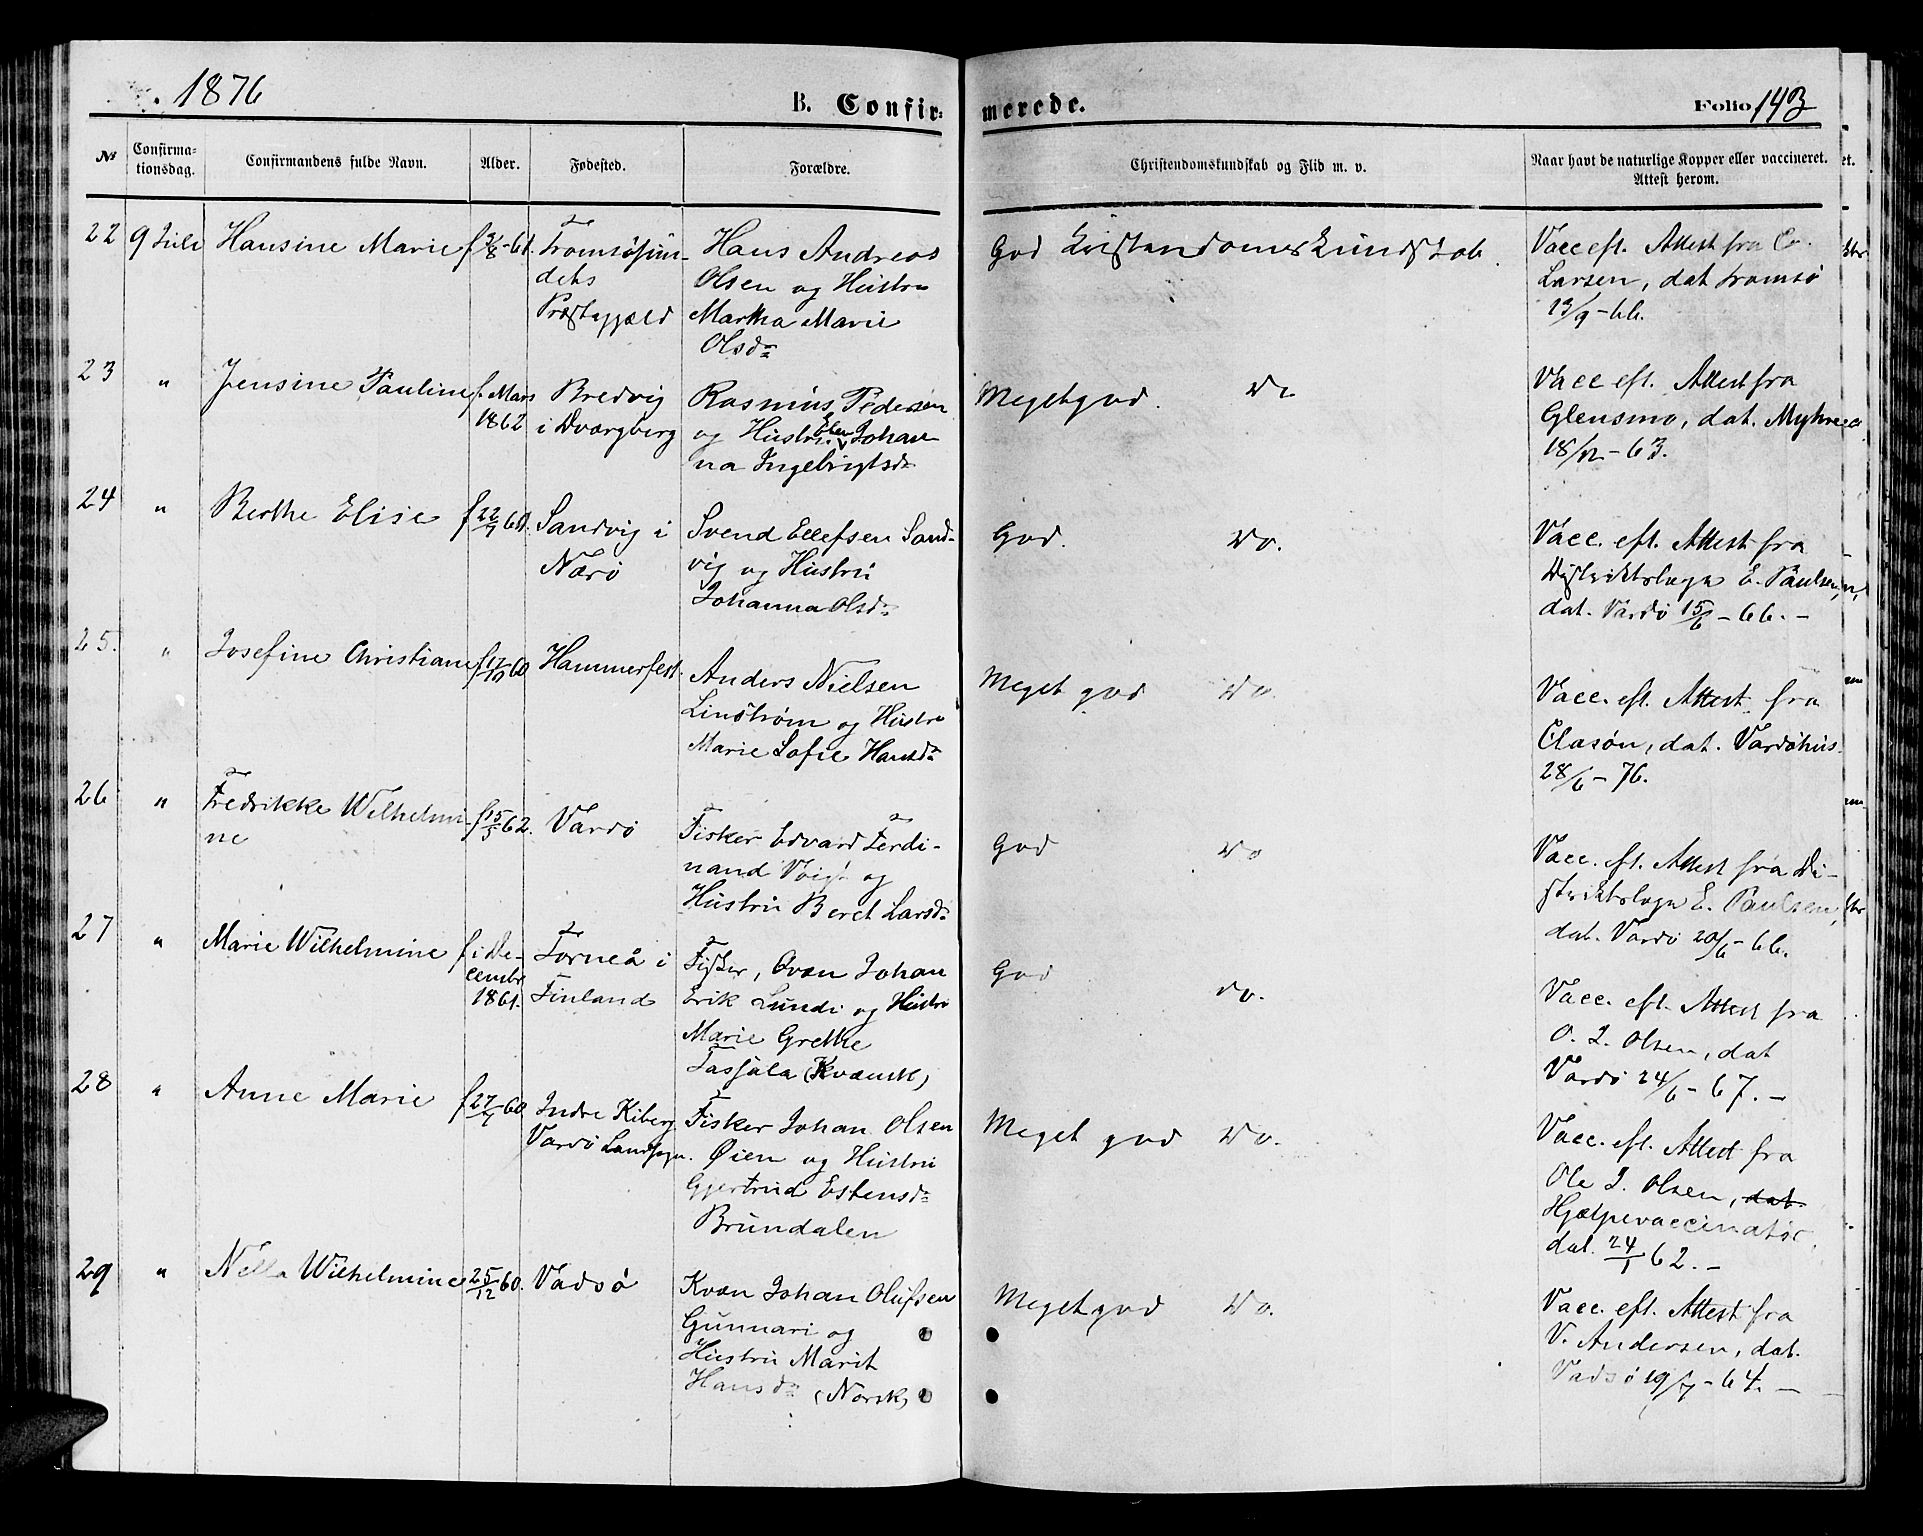 1876
B. Confir=
merede.
Folio 143
No
Confirma-
tionsdag.
Confirmandens fulde Navn.
Alder.
Fødested.
Forældre.
Christendomskundskab og Flid m. v.
Naar havt de naturlige Kopper eller vaccineret.
Attest herom.
22 9 Juli Hansine Marie f 3/8-61. Tromsøsun-
dets
Præstegjæld
Hans Andreas
Olsen og Hustru
Martha Marie
Olsdr
God Kristendomskundskab.
Vacc eft. Attest fra Co.
Larsen, dat tromsø
13/9-66.
23 " Jensine Pauline f. Mars
1862
Bredvig
i Dværgberg
Rasmus Pedersen
og Hustru Elen Johan
na Ingebrigtsdr
Meget god. Do
Vacc eft. Attest fra
Glensmo, dat. Myhre
18/12-63.
24 " Berthe Elise f 22/7 60. Sandvig i
Nærø
Svend Ellefsen Sand-
vig og Hustru
Johanna Olsdr
God. Do.
Vacc. eft. Attest fra
Distriktslæge E. Paulsen,
dat. Vardø 15/6-66.-
25. " Josefine Christiane f 17/10 60 Hammerfest.
Anders Nielsen
Linstrøm og Hustru
Marie Sofie Hansdr
Meget god Do.
Vacc. eft. Attest fra
Clasøn, dat. Vardøhus
28/6-76.
26 " Fredrikke Wilhelmi-
ne
f 15/5 62. Vardø
Fisker Edvard Ferdi-
nand Voigt og
Hustru Beret Larsdr
God Do
Vacc. eft. Attest fra Di-
striktslæge E. Paulsen,
dat. Vardø 20/6-66.
27 " Marie Wilhelmine f i De-
cembr
1861.
Torneå i
Finland
Fisker, Qvæn Johan
Erik Lundi og Hustru
Marie Grethe
Tasjala (Kvænsk)
God do.
Vacc. eft. Attest fra
O. J. Olsen, dat
Vardø 24/6-67.-
28 " Anne Marie f 27/7 60 Indre Kiberg
Vardø Landsogn.
Fisker Johan Olsen
Øien og Hustru
Gjertrud Estensdr
Brundalen
Meget god Do.
Vacc. eft. Attest fra
Ole J. Olsen, dat
Hjælpevaccinatør,
dat. 24/1 62.-
29 " Nella Wilhelmine 25/12 60. Vadsø
Kvæn Johan Olufsen
Gunnari og
Hustru Marit
Hansdr (Norsk)
Meget god Do.
Vacc. eft. Attest fra
V. Andersen, dat.
Vadsø 19/7-64.-